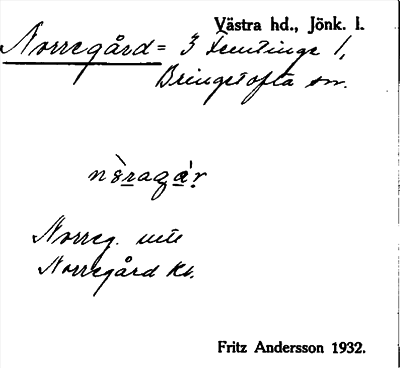 Västra hd., Jönk. l.
Norregård = 3 Femtinge 1,
Bringetofta sn.
Norreg. 
Norregård kt.
Fritz Andersson 1932.